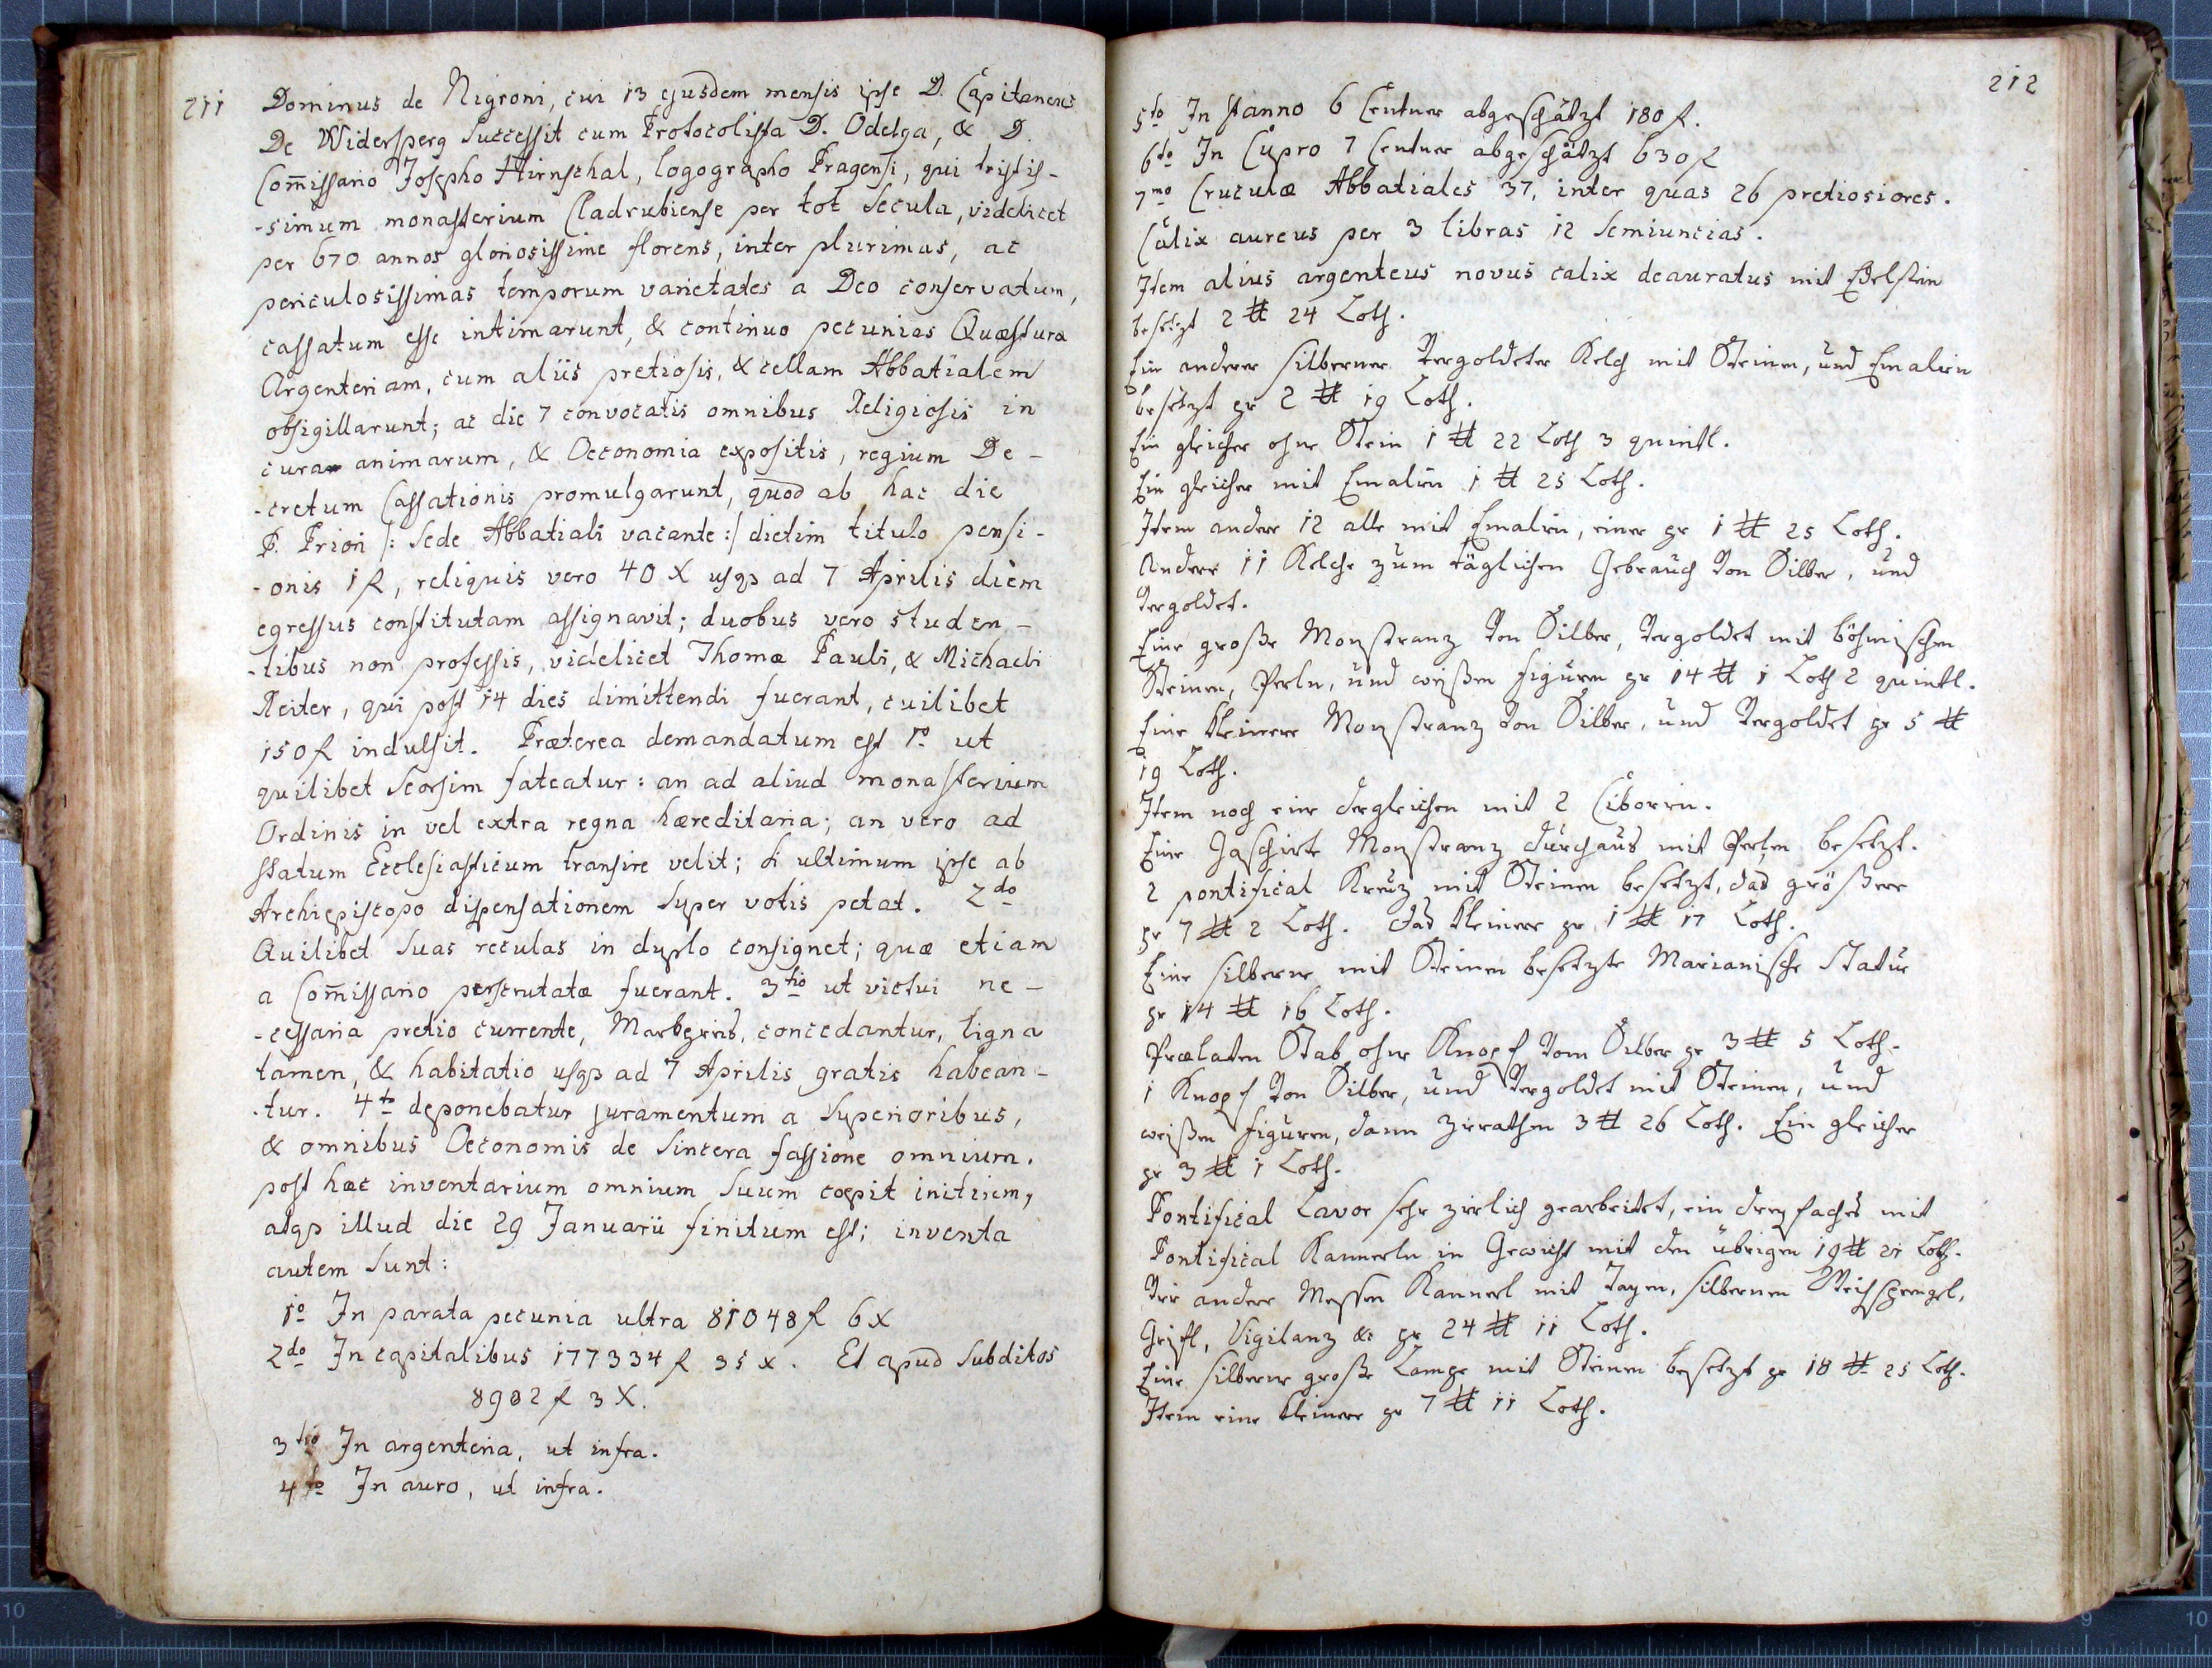 211
Dominus de Nigroni, cui 13 ejusdem mensis ipse D. Capitaneus
De Widersperg successit cum Protocolista D. Odelga, & D.
Com̄issario Josepho Hirnschal, logographo Pragensi, qui tristis-
-simum monasterium Cladrubiense per tot secula, videlicet
per 670 annos gloriosissime florens, inter plurimas, ac
periculosissimas temporum varietates a Deo conservatum,
cassatum esse intimarunt, & continuo pecunias Quæstura
Argenteriam, cum aliis pretiosis, & cellam Abbatialem
obsigillarunt; ac die 7 convocatis omnibus Religiosis in
cura animarum, & Oeconomia expositis, regium De-
-cretum Cassationis promulgarunt, quod ab hac die
P. Priori /: Sede Abbatiali vacante :/ dietim titulo pensi-
-onis 1 f, reliquis vero 40 X usqs ad 7 Aprilis diem
egressus constitutam assignavit; duobus vero studen-
-tibus non professis, videlicet Thomæ Pauli, & Michaeli
Reiter, qui post 14 dies dimittendi fuerant, cuilibet
150 f indulsit. Præterea demandatum est 1o ut
quilibet seorsim fateatur: an ad aliud monasterium
Ordinis in vel extra regna hæreditaria; an vero ad
statum Ecclesiasticum transire velit; si ultimum ipse ab
Archiepiscopo dispensationem super votis petat. 2do
Quilibet suas reculas in duplo consignet; quæ etiam
a Com̄issario perscrutatæ fuerant. 3tio ut victui ne-
-cessaria pretio currente, concedantur, ligna
tamen, & habitatio usqs ad 7 Aprilis gratis habean-
-tur. 4to deponebatur juramentum a Superioribus,
& omnibus Oeconomis de sincera fassione omnium.
post hæc inventarium omnium suum cœpit initium,
atqs illud die 29 Januarii finitum est; inventa
autem sunt:
1o In parata pecunia ultra 81048 f 6 X
2do In capitalibus 177334 f 35 x. Et apud Subditos
8982 f 3 X.
3tio In argenteria, ut infra.
4to In auro, ut infra.
212
5to In stanno 6 Centner abgeschätzt 180 f.
6to In Cupro 7 Centner abgeschätzt 630 f
7mo Cruculæ Abbatiales 37, inter quas 26 pretiosiores.
Calix aureus per 3 libras 12 semiuncias.
Item alius argenteus novus calix deauratus mit Edelstein
besetzt 2 ℔ 24 Loth.
Ein anderer silberner vergoldeter Kelch mit Steinen, und Emalien
besetzt pr 2 ℔ 19 Loth.
Ein gleicher ohne Stein 1 ℔ 22 Loth 3 quintl.
Ein gleicher mit Emalien 1 ℔ 25 Loth.
Item andere 12 alle mit Emalien, einer pr 1 ℔ 25 Loth.
Andere 11 Kelche zum täglichen Gebrauch von Silber, und
vergoldet.
Eine große Monstranz von Silber, vergoldet mit böhmischen
Steinen, Perln, und weißen Figuren pr 14 ℔ 1 Loth 2 quintl.
Eine kleinere Monstranz von Silber, und vergoldet pr 5 ℔
19 Loth.
Item noch eine dergleichen mit 2 Ciborien.
Eine Monstranz durchaus mit Perlen besetzt.
2 pontifical Kreuz mit Steinen besetzt, das größere
pr 7 ℔ 2 Loth. das kleinere pr 1 ℔ 17 Loth.
Eine silberne mit Steinen besetzte Marianische Statue
pr 14 ℔ 16 Loth.
Prælaten Stab ohne Knopf vom Silber pr 3 ℔ 5 Loth.
1 Knopf von Silber, und vergoldet mit Steinen, und
weißen Figuren, dann Zierathen 3 ℔ 26 Loth. Ein gleicher
pr 3 ℔ 1 Loth.
Pontifical Lavor sehr zierlich gearbeitet, ein dreyfaches mit
Pontifical Kannerln in Gewicht mit den übrigen 19 ℔ 21 Loth.
Vier andere Messen Kannerl mit Tazen, silbernen Weihsprengel,
Vigilanz &c pr 24 ℔ 11 Loth.
Eine silberne große Lampe mit Steinen besetzt pr 18 ℔ 25 Loth.
Item eine kleinere pr 7 ℔ 11 Loth.